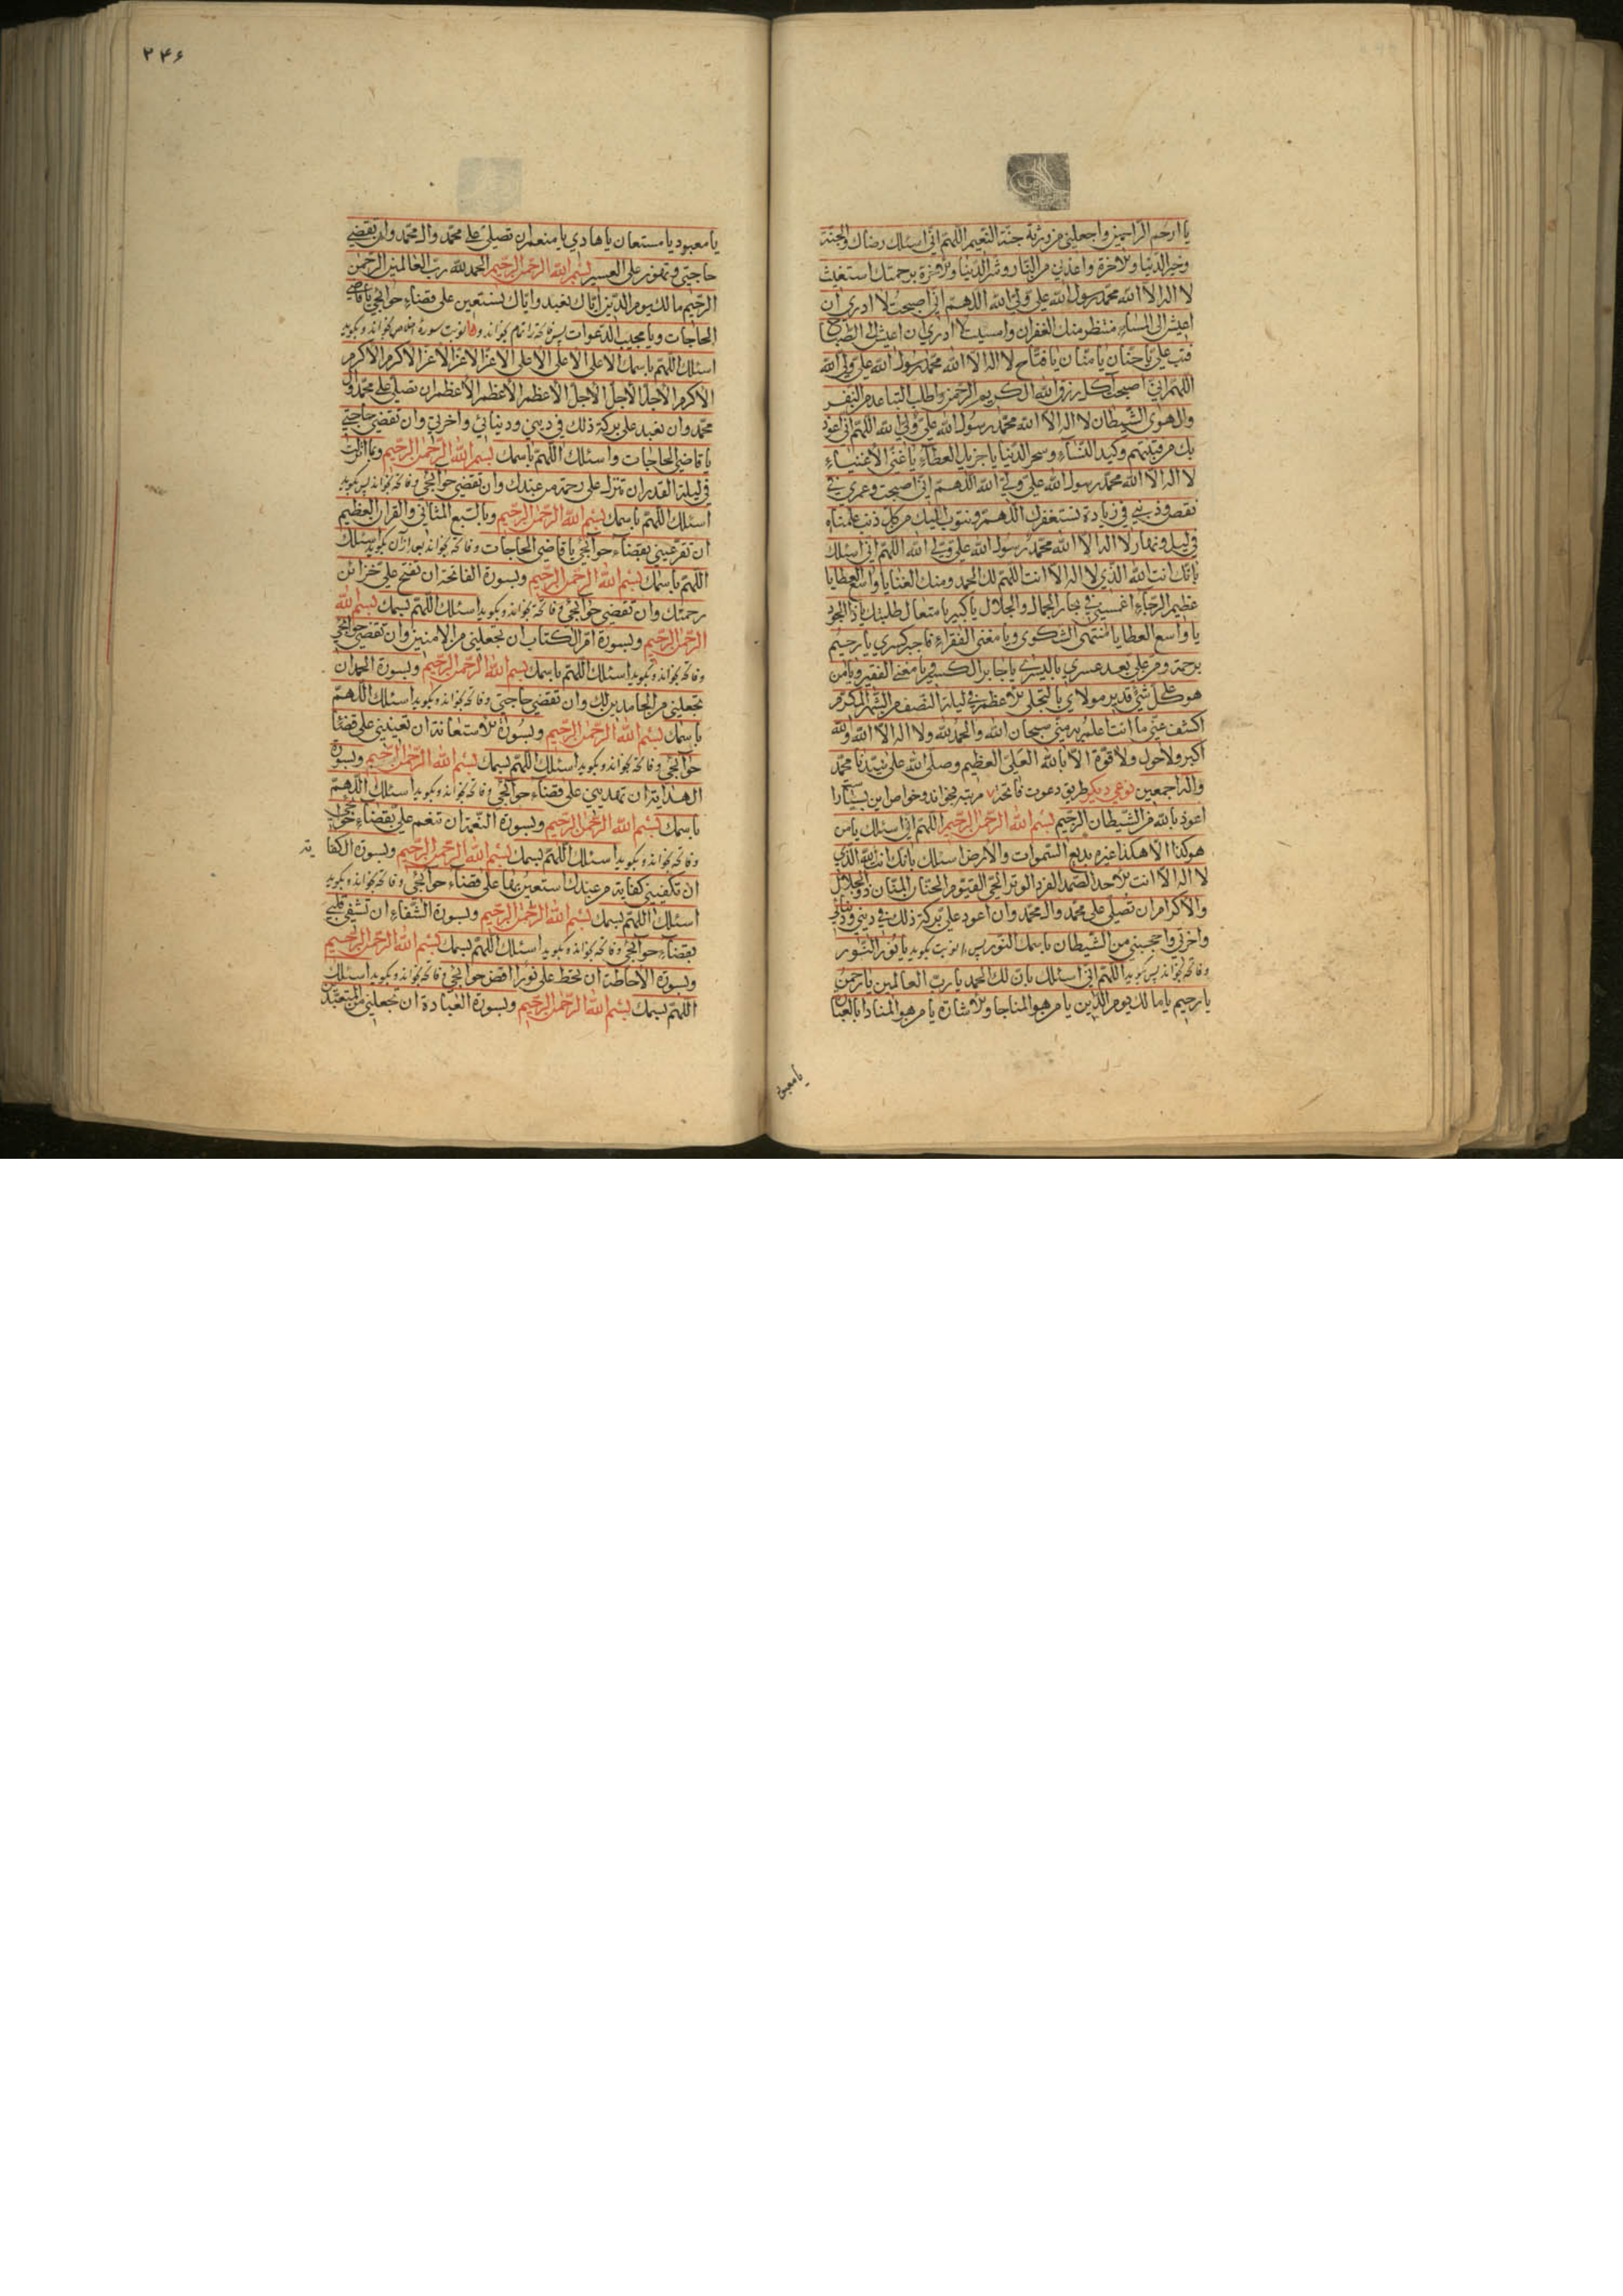 يا ارحم الراحمين واجعلني من ورثة جنة النعيم اللهم اني اسئلك رضاك والجنة
وخير الدنيا والاخرة واعذني من النار وشر الدنيا والاخرة برحمتك استغيث
لا اله الا الله محمد رسول الله علي ولي الله اللهم اني اصبحت لا ادري ان
اعيش الى المساء منتظر منك الغفران وامسيت لا ادري ان اعيش الى الصباح
فتب علي يا حنان يا منان يا فتاح لا اله الا الله محمد رسول الله علي ولي الله
اللهم اني اصبحت آكل رزق الله الكريم الرحمن واطلب التباعد من النفس
وال هوى الشيطان لا اله الا الله محمد رسول الله علي ولي الله اللهم اني اعوذ
بك من فتنتهم وكيد النساء وسحر الدنيا يا جزيل العطاء يا غني الاغنياء
لا اله الا الله محمد رسول الله علي ولي الله اللهم اني اصبحت وعمري في
نقص وذنبي في زيادة نستغفرك اللهم ونتوب اليك من كل ذنب علمناه
في ليل ونهار لا اله الا الله محمد رسول الله علي ولي الله اللهم اني اسئلك
بانك انت الله الذي لا اله الا انت اللهم لك الحمد ومنك الغنا يا واسع العطايا
عظيم الرجاء اغمسني في بحار الجمال والجلال يا كبير يا متعال طلبتك يا ذا الجود
يا واسع العطايا يا منتهى الشكوى ويا مغني الفقراء فاجبر كسري يا رحيم
برحمة ومن علي بعد عسري باليسر يا جابر الكسير يا مغني الفقير ويا من
هو على كل شئ قدير مولاي بالتجلي الاعظم في ليلة النصف من الشهر المكرم
اكشف عني ما انت اعلم به مني سبحان الله والحمد لله ولا اله الا الله والله
اكبر ولا حول ولا قوة الا بالله العلي العظيم وصلى الله على سيدنا محمد
واله اجمعين نوعي ديكر طريق دعوت فاتحة ٧ مرتبه بخواند وخواص اين بسيار
اعوذ بالله من الشيطان الرجيم بسم الله الرحمن الرحيم اللهم اني اسئلك يا من
هو هكذا الا هكذا غيره بديع السموات والارض اسئلك بانك انت الله الذي
لا اله الا انت الاحد الصمد الفرد الوتر الحي القيوم الحنان المنان ذو الجلال
والاكرام ان تصلي على محمد وال محمد وان اعود علي بركة ذلك في ديني ودنيائي
واخرتي واحجبني من الشيطان باسمك النور پس نوبت بكويد يا نور النور
وفاتحه بخواند پس بكويد اللهم اني اسئلك بان لك الحمد يا رب العالمين يا رحمن
يا رحيم يا مالك يوم الدين يا من هو المناجا والاشارة يا من هو المنادا بالعبادة
يا معبود
٢٤٦
يا معبود يا مستعان يا هادي يا منعم ان تصلي على محمد وال محمد وان تقضي
حاجتي وتهون على العسير بسم الله الرحمن الرحيم الحمد لله رب العالمين الرحمن
الرحيم مالك يوم الدين اياك نعبد واياك نستعين على قضاء حوائجي يا قاضي
الحاجات ويا مجيب الدعوات پس فاتحه را تمام بخواند و نوبت سورة اخلاص بخواند و بكويد
اسئلك اللهم باسمك الاعلى الاعلى الاعلى الاعز الاعز الاعز الاكرم الاكرم
الاكرم الاجل الاجل الاجل الاعظم الاعظم الاعظم ان تصلي على محمد وال
محمد وان تعيد علي بركة ذلك في ديني ودنيائي واخرتي وان تقضي حاجتي
يا قاضي الحاجات واسئلك اللهم باسمك بسم الله الرحمن الرحيم وبما انزلت
في ليلة القدر ان تنزل علي رحمة من عندك وان تقضي حوائجي وفاتحه بخواند پس بكويد
اسئلك اللهم باسمك بسم الله الرحمن الرحيم وبالسبع المثاني والقران العظيم
ان تقر عيني بقضاء حوائجي يا قاضي الحاجات وفاتحه بخواند بعد ازان بكويد اسئلك
اللهم باسمك بسم الله الرحمن الرحيم وبسورة الفاتحة ان تفتح علي خزائن
رحمتك وان تقضي حوائجي وفاتحه بخواند و بكويد اسئلك اللهم بسمك بسم الله
الرحمن الرحيم وبسورة ام الكتاب ان تجعلني من الامنين وان تقضي حوائجي
وفاتحه بخواند و بكويد اسئلك اللهم باسمك بسم الله الرحمن الرحيم وبسورة الحمد ان
تجعلني من الحامدين لك وان تقضي حاجتي وفاتحه بخواند و بكويد اسئلك اللهم
باسمك بسم الله الرحمن الرحيم وبسورة الاستعانة ان تعينني على قضاء
حوائجي وفاتحه بخواند و بكويد اسئلك اللهم بسمك بسم الله الرحمن الرحيم وبسورة
الهداية ان تهديني على قضاء حوائجي وفاتحه بخواند و بكويد اسئلك اللهم
باسمك بسم الله الرحمن الرحيم وبسورة النعمة ان تنعم علي بقضاء حوائجي
وفاتحه بخواند و بكويد اسئلك اللهم بسمك بسم الله الرحمن الرحيم وبسورة الكفاية
ان تكفيني كفاية من عندك استعين بها على قضاء حوائجي وفاتحه بخواند و بكويد
اسئلك اللهم بسمك بسم الله الرحمن الرحيم وبسورة الشفاء ان تشفي قلبي
بقضاء حوائجي وفاتحه بخواند و بكويد اسئلك اللهم بسمك بسم الله الرحمن الرحيم
وبسورة الاحاطة ان تحط علي نورا اقض حوائجي وفاتحه بخواند و بكويد اسئلك
اللهم بسمك بسم الله الرحمن الرحيم وبسورة العبادة ان تجعلني من المتعبدين